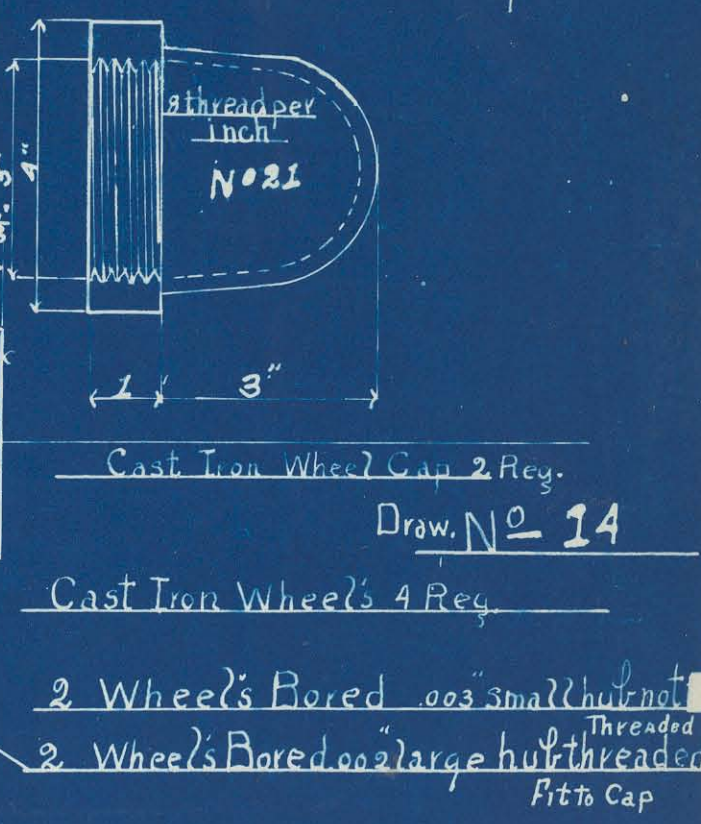 8 thread per
inch
Nº 21
4"
1
3"
Cast Iron Wheel Cap 2 Req.
Draw. Nº 14
Cast Iron Wheel's 4 Req.
2 Wheel's Bored .003" small hub not
Threaded
2 Wheel's Bored .002" large hub threaded
Fit to Cap